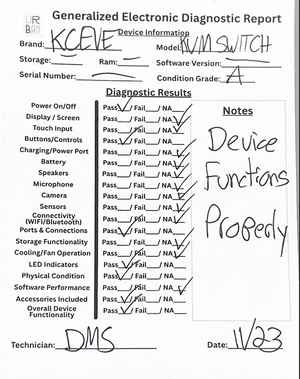 UR
BAN
Generalized Electronic Diagnostic Report
Device Information
Brand: KCEVE Model: KVM SWITCH
Storage: — Ram: — Software Version: —
Serial Number: — Condition Grade: A
Diagnostic Results
Power On/Off Pass✓/ Fail___/ NA___
Display / Screen Pass___/ Fail___/ NA✓
Touch Input Pass___/ Fail___/ NA✓
Buttons/Controls Pass✓/ Fail___/ NA___
Charging/Power Port Pass___/ Fail___/ NA✓
Battery Pass___/ Fail___/ NA✓
Speakers Pass___/ Fail___/ NA✓
Microphone Pass___/ Fail___/ NA✓
Camera Pass___/ Fail___/ NA✓
Sensors Pass___/ Fail___/ NA✓
Connectivity
(WIFI/Bluetooth) Pass___/ Fail___/ NA✓
Ports & Connections Pass✓/ Fail___/ NA___
Storage Functionality Pass___/ Fail___/ NA✓
Cooling/Fan Operation Pass___/ Fail___/ NA✓
LED Indicators Pass✓/ Fail___/ NA___
Physical Condition Pass✓/ Fail___/ NA___
Software Performance Pass___/ Fail___/ NA✓
Accessories Included Pass✓/ Fail___/ NA___
Overall Device
Functionality Pass✓/ Fail___/ NA___
Notes
Device
Functions
Properly
Technician: DMS Date: 11/23